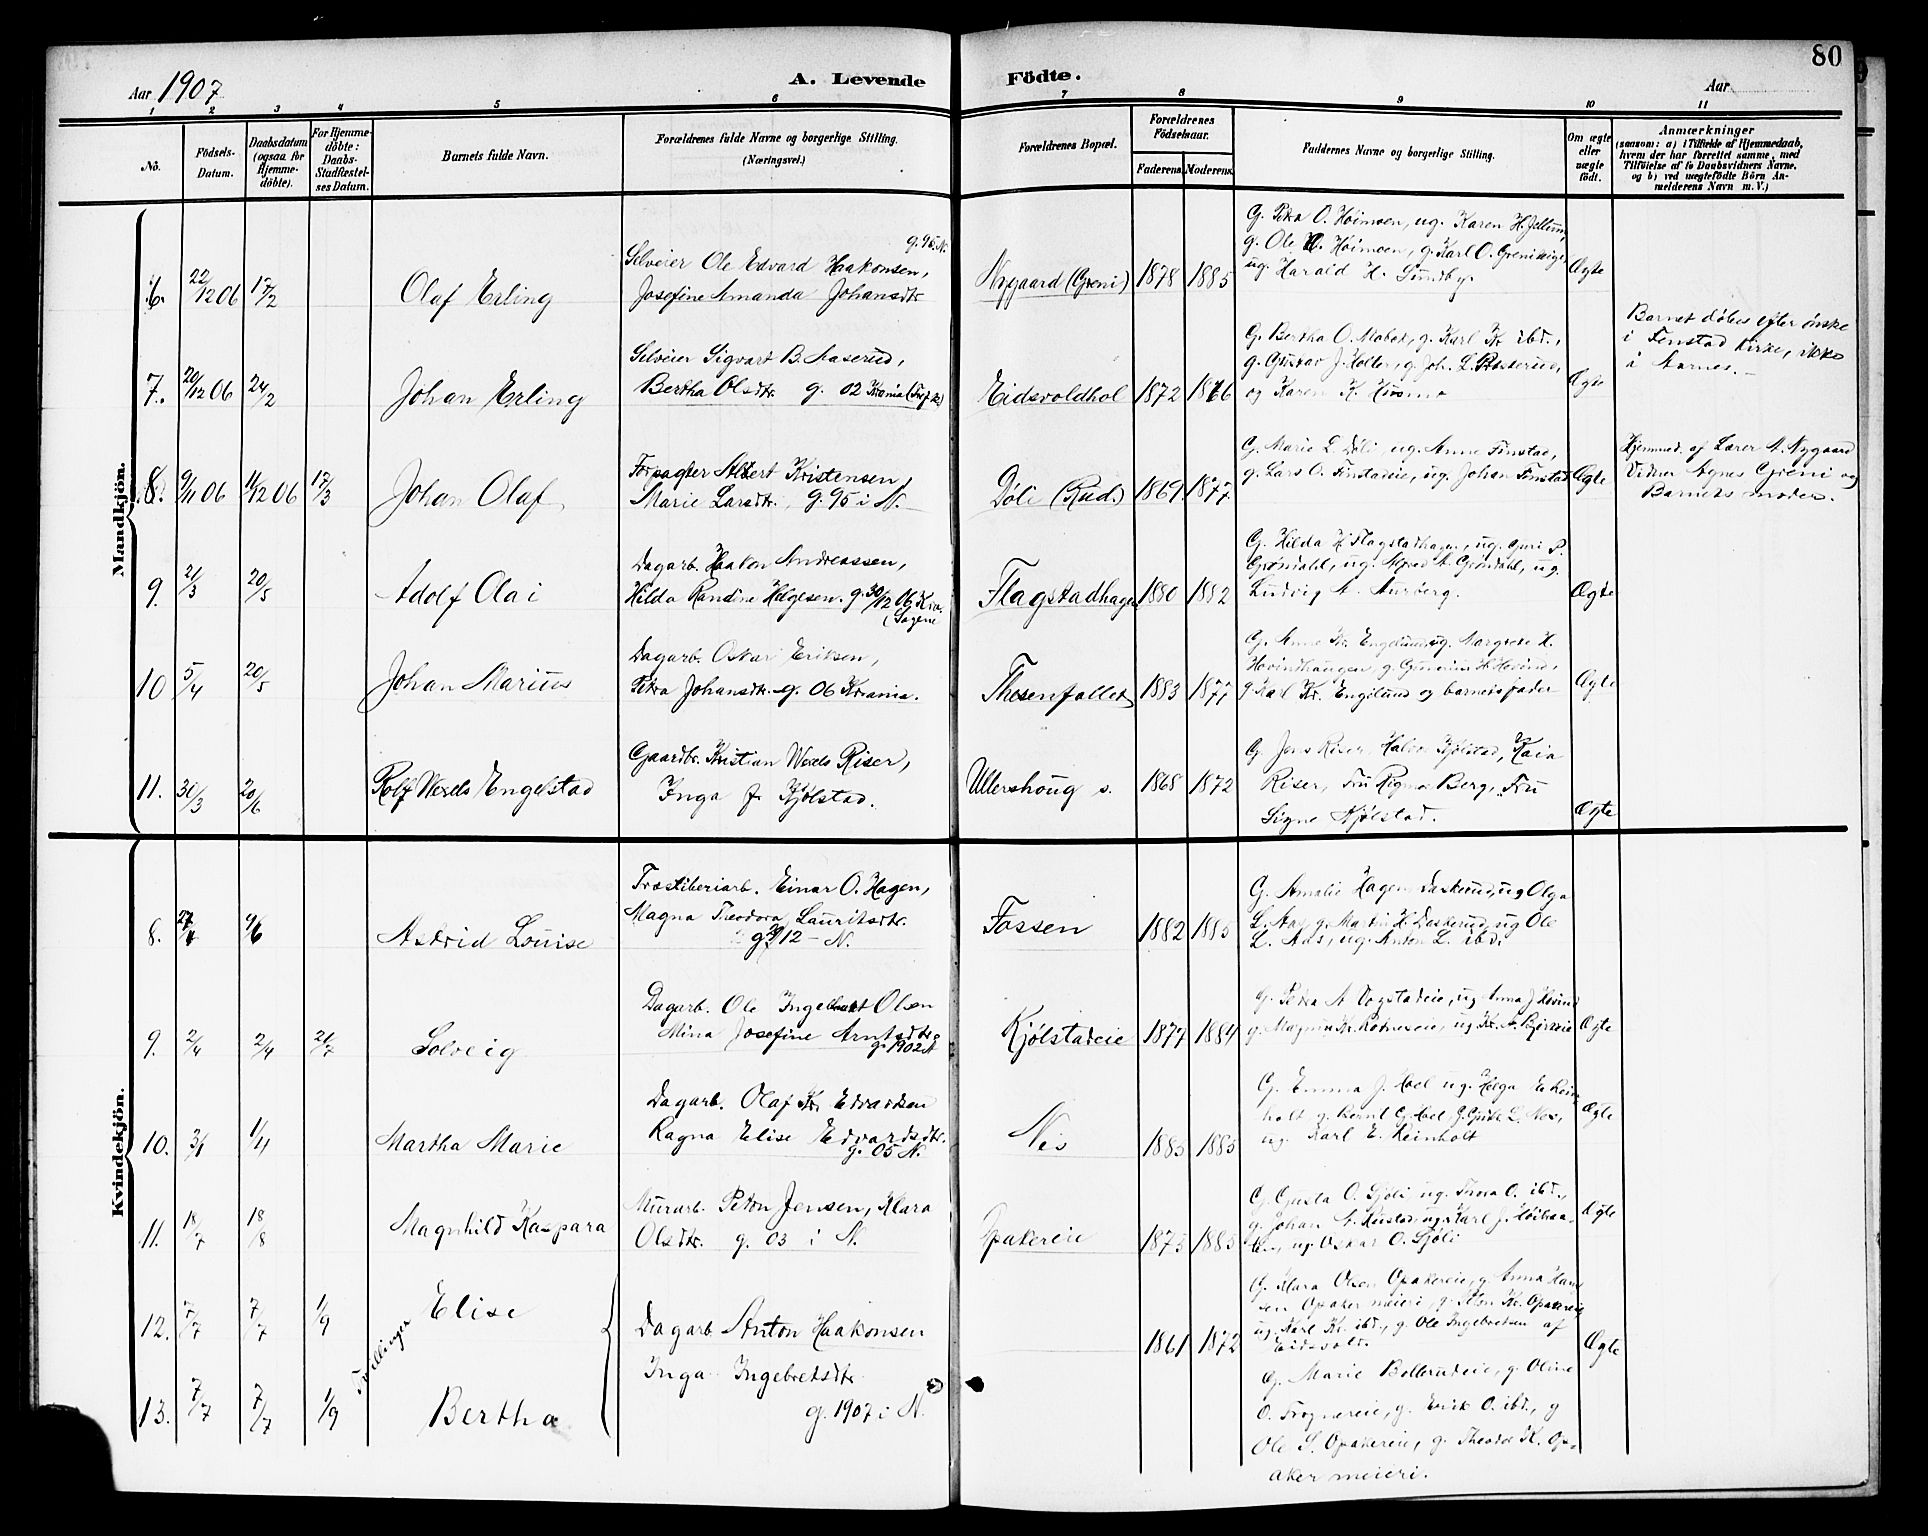 80
Aar 1907
A. Levende Födte.
Aar
1 2 3 4 5 6 7 8 9 10 11
Nö.
Födsels-Datum.
Daabsdatum (ogsaa for Hjemme-döbte).
For Hjemme-döbte: Daabs-Stadfæstel-ses Datum.
Barnets fulde Navn.
Forældrenes fulde Navne og borgerlige Stilling. (Næringsvei.)
Forældrenes Bopæl.
Forældrenes Födselsaar.
Faderens. Moderens.
Faddernes Navne og borgerlige Stilling.
Om ægte eller uægte födt.
Anmærkninger
(saasom: a) i Tilfælde af Hjemmedaab,
hvem der har forrettet samme, med
Tilföielse af to Daabsvidners Navne.
og b) ved uægtefödte Börn An-
melderens Navn m. V.)
Mandkjön.
6. 22/12 06 17/2 Olaf Erling
g. 95 N.
Selveier Ole Edvard Haakonsen,
Josefine Amanda Johansdtr
Nygaard (Greni) 1878 1885
G. Petra O. Höimoen, ug. Karen H. Jellum,
g. Ole Höimoen, g. Karl O.
ug. Harald H. Sundby.
Ægte
7. 20/12 06 24/2 Johan Erling
Selveier Sigvart B. Aaserud,
Bertha Olsdtr. g. 02 Krania
Eidsvoldhol 1872 1876
G. Bertha O. g. Karl Kr. ibd.,
g. Gustav J. Holler, g. Joh. L.
og Karen K.
Ægte
Barnet döbes efter önske
i Fenstad Kirke, ikke
i Aarnes.
8. 9/11 06 11/12 06 17/3 Johan Olaf
Forpagter Albert Kristensen,
Marie Larsdtr., g. 95 i N.
Döli (Rud.) 1869 1877
G. Marie L. Döli, ug. Anne Finstad,
g. Lars O. Finstadeie, ug. Johan Finstad
Ægte
Hjemmed. af Lærer A. Nygaard
Vidner Agnes Greni og
Barnets moder.
9. 21/3 20/5 Adolf Olai
Dagarb. Haakon Andreassen,
Hilda Randine Helgesen. g. 30/12 06 Kra.
(Sagene
Flagstadhagen 1880 1882
G. Hilda H. Flagstadhagen, ug. Guri P.
Gröndahl, ug. Alfred A. Gröndahl, ug.
Ludvig A. Aurberg.
Ægte
10 5/4 20/5 Johan Marius
Dagarb. Oskar Eriksen,
Petra Johansdtr. g. 06 Krania.
Thesenfallet 1883 1877
G. Anne Kr. Engelund ug. Margrete H.
Hovindhaugen, g. Gunerius H. Hovind,
g. Karl Kr. Engelund og barnets fader
Ægte
11. 31/3 20/6 Rolf Wexels Engelstad
Gaardbr. Kristian Wexels Riser,
Inga f. Kjölstad.
Ullershoug s. 1868 1872
G. Jens Riser, Halvor Kjölstad, Kaia
Riser, Fru Ragna Berg, Fru
Signe Kjölstad.
Ægte
Kvindekjön.
8. 4/6 Astrid Louise
Træsliberiarb. Einar O. Hagen,
Magna Theodora Lauritsdtr.
12 - N.
Fossen 1882 1885
G. Amalie Hagen Daskerud, ug Olga
L. Aas, g. Martin H. Daskerud, ug Ole
L. Aas, ug. Anton L. ibd.
9. 2/4 2/4 21/7 Solveig
Dagarb. Ole Ingebret Olsen
Mina Josefine Arntsdtr.
g. 1902 N
Kjölstadeie 1877 1884
G. Petra A. Vogstadeie, ug. Anna J. Hovind
g. Magnus Kr.
Ægte
10. 3/1 1/4 Martha Marie
Dagarb. Olaf Kr. Edvardsen
Ragna Elise Edvardsdtr.
g. 05 N.
Nes 1885 1885
G. Emma J. Hoel ug. Helga E. Rein-
holt g. Bernt G. Hoel, L. Nes,
ug. Karl E. Reinholt
Ægte
11. 18/7 18/8 Magnhild Kaspara
Murarb. Peton Jensen, Klara
Olsdtr. g. 03 i N.
Opakereie 1875 1885
G. Gusta O. Sjöli ug. Thea O. ibd.,
g. Johan A. Rustad, ug. Karl J.
ug. Oskar O. Sjöli
Ægte
12. 7/7 7/7 1/9 Elise
Tvillinger
Dagarb. Anton Haakonsen
Inga Ingebretsdtr
g. 1907 i N.
1861 1872
G. Klara Olsen Opakereie, g. Anna Han
sen Opaker meieri, g. Peton Kr. Opakereie
ug. Karl Kr. ibd., g. Ole Ingebretsen af
Eidsvold.
Ægte
13. 7/7 7/7 1/9 Bertha
G. Marie Bollerudeie, g. Oline
O. Trognereie, g. Erik O. ibd., g
Ole S. Opakereie, g. Theodor K. Op-
aker meieri.